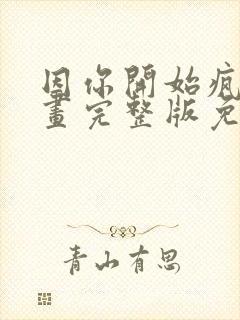 因你開始瘋
畫完整版免
青山有思